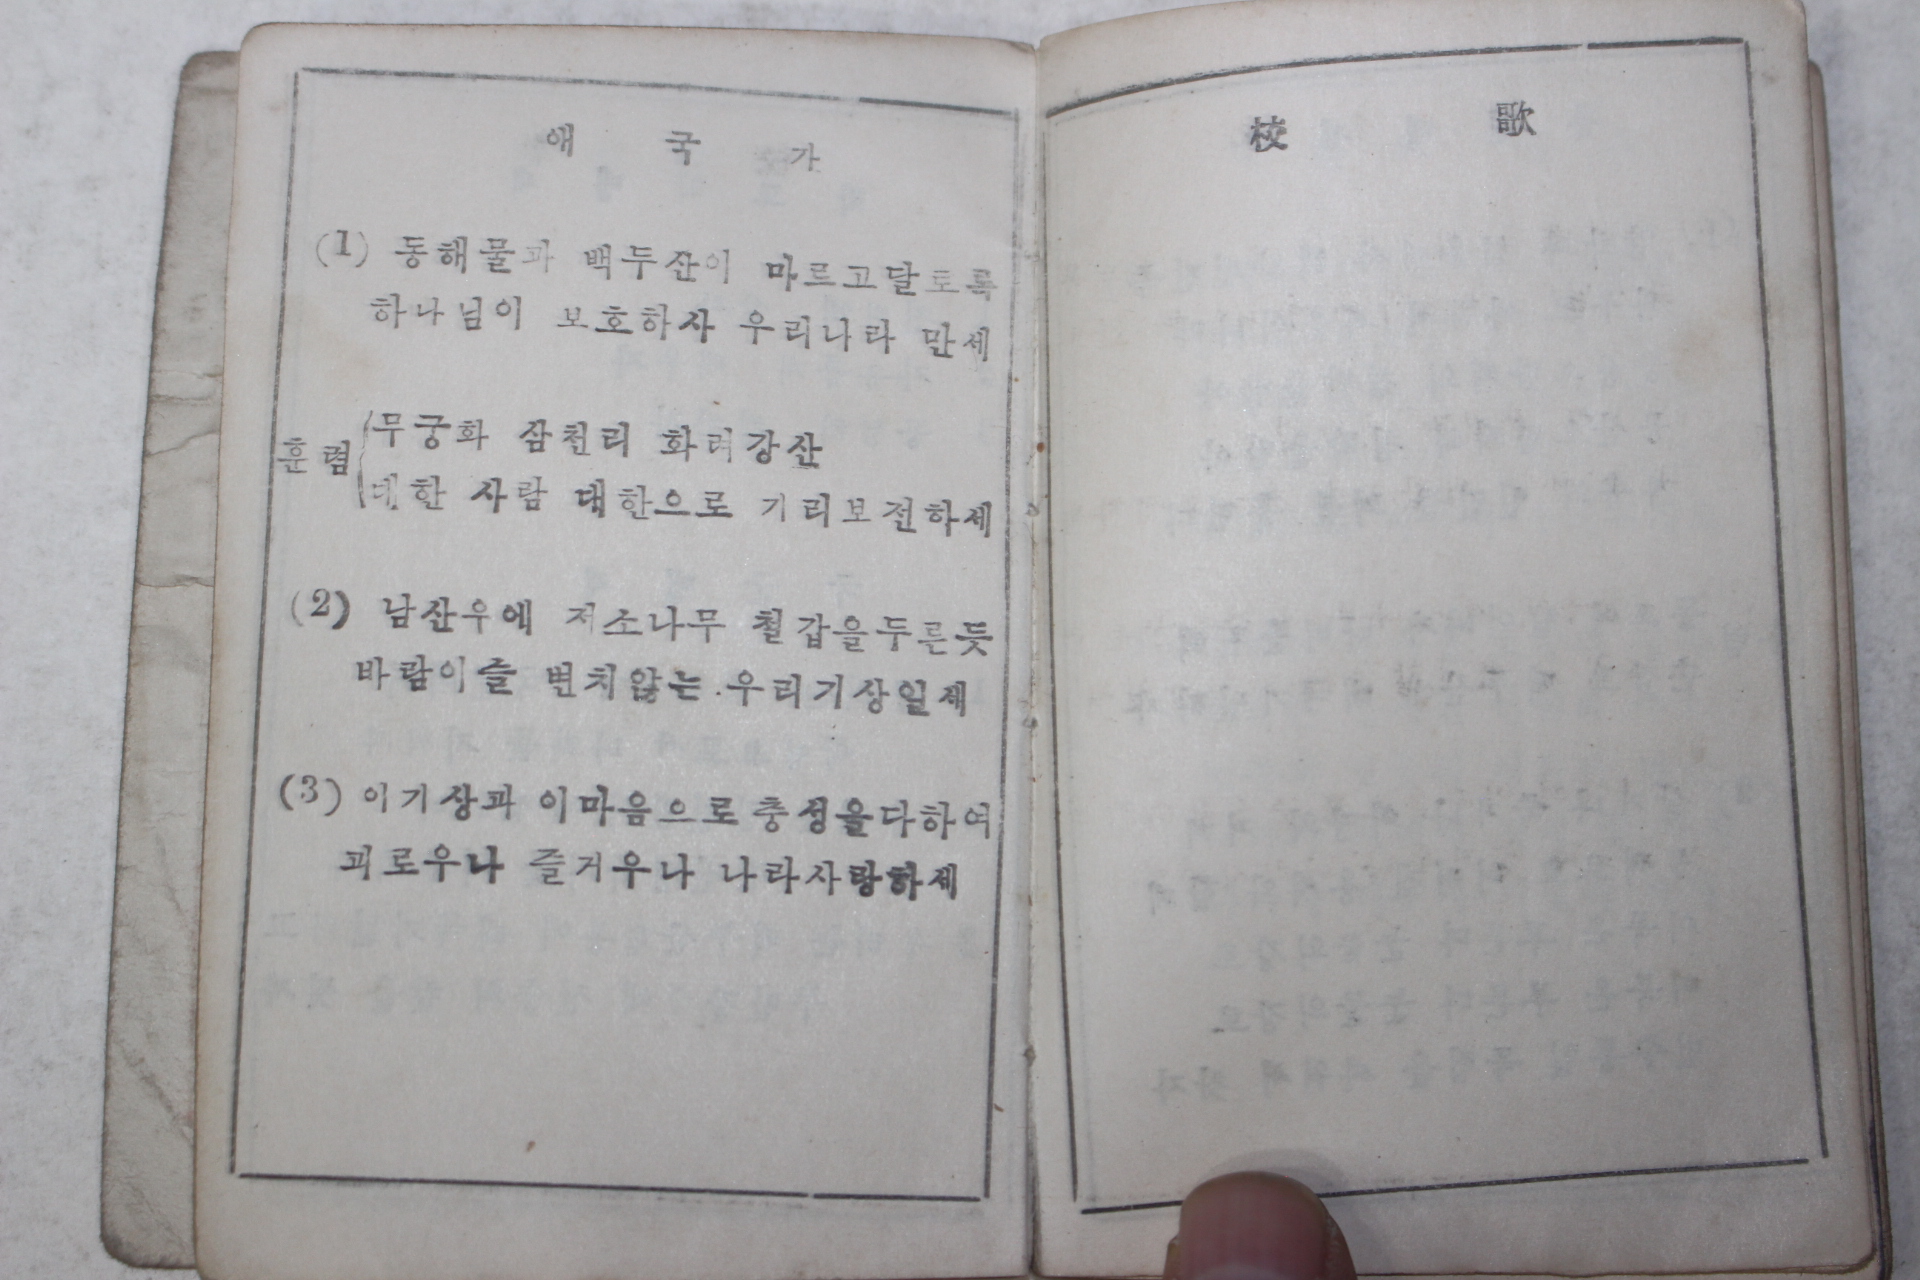 애 국 가
(1) 동해물과 백두산이 마르고달토록
하나님이 보호하사 우리나라 만세
훈렴
무궁화 삼천리 화려강산
대한 사람 대한으로 기리보전하세
(2) 남산우에 저소나무 철갑을두른듯
바람이슬 변치않는 우리기상일세
(3) 이기상과 이마음으로 충성을다하여
괴로우나 즐거우나 나라사랑하세
校 歌